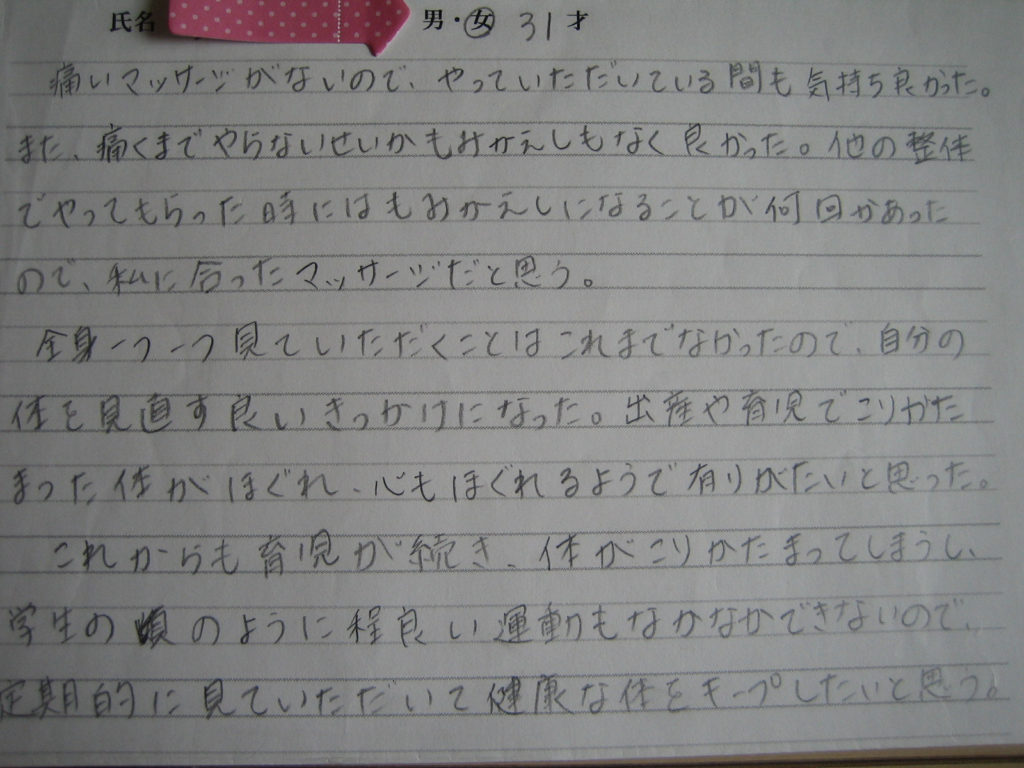 氏名 男・女 31才
痛いマッサージがないので、やっていただいている間も気持ち良かった。
また、痛くまでやらないせいかもみかえしもなく良かった。他の整体
でやってもらった時にはもみかえしになることが何回かあった
ので、私に合ったマッサージだと思う。
全身一つ一つ見ていただくことはこれまでなかったので、自分の
体を見直す良いきっかけになった。出産や育児でこりかた
まった体がほぐれ、心もほぐれるようで有りがたいと思った。
これからも育児が続き、体がこりかたまってしまうし、
学生の頃のように程良い運動もなかなかできないので、
定期的に見ていただいて健康な体をキープしたいと思う。